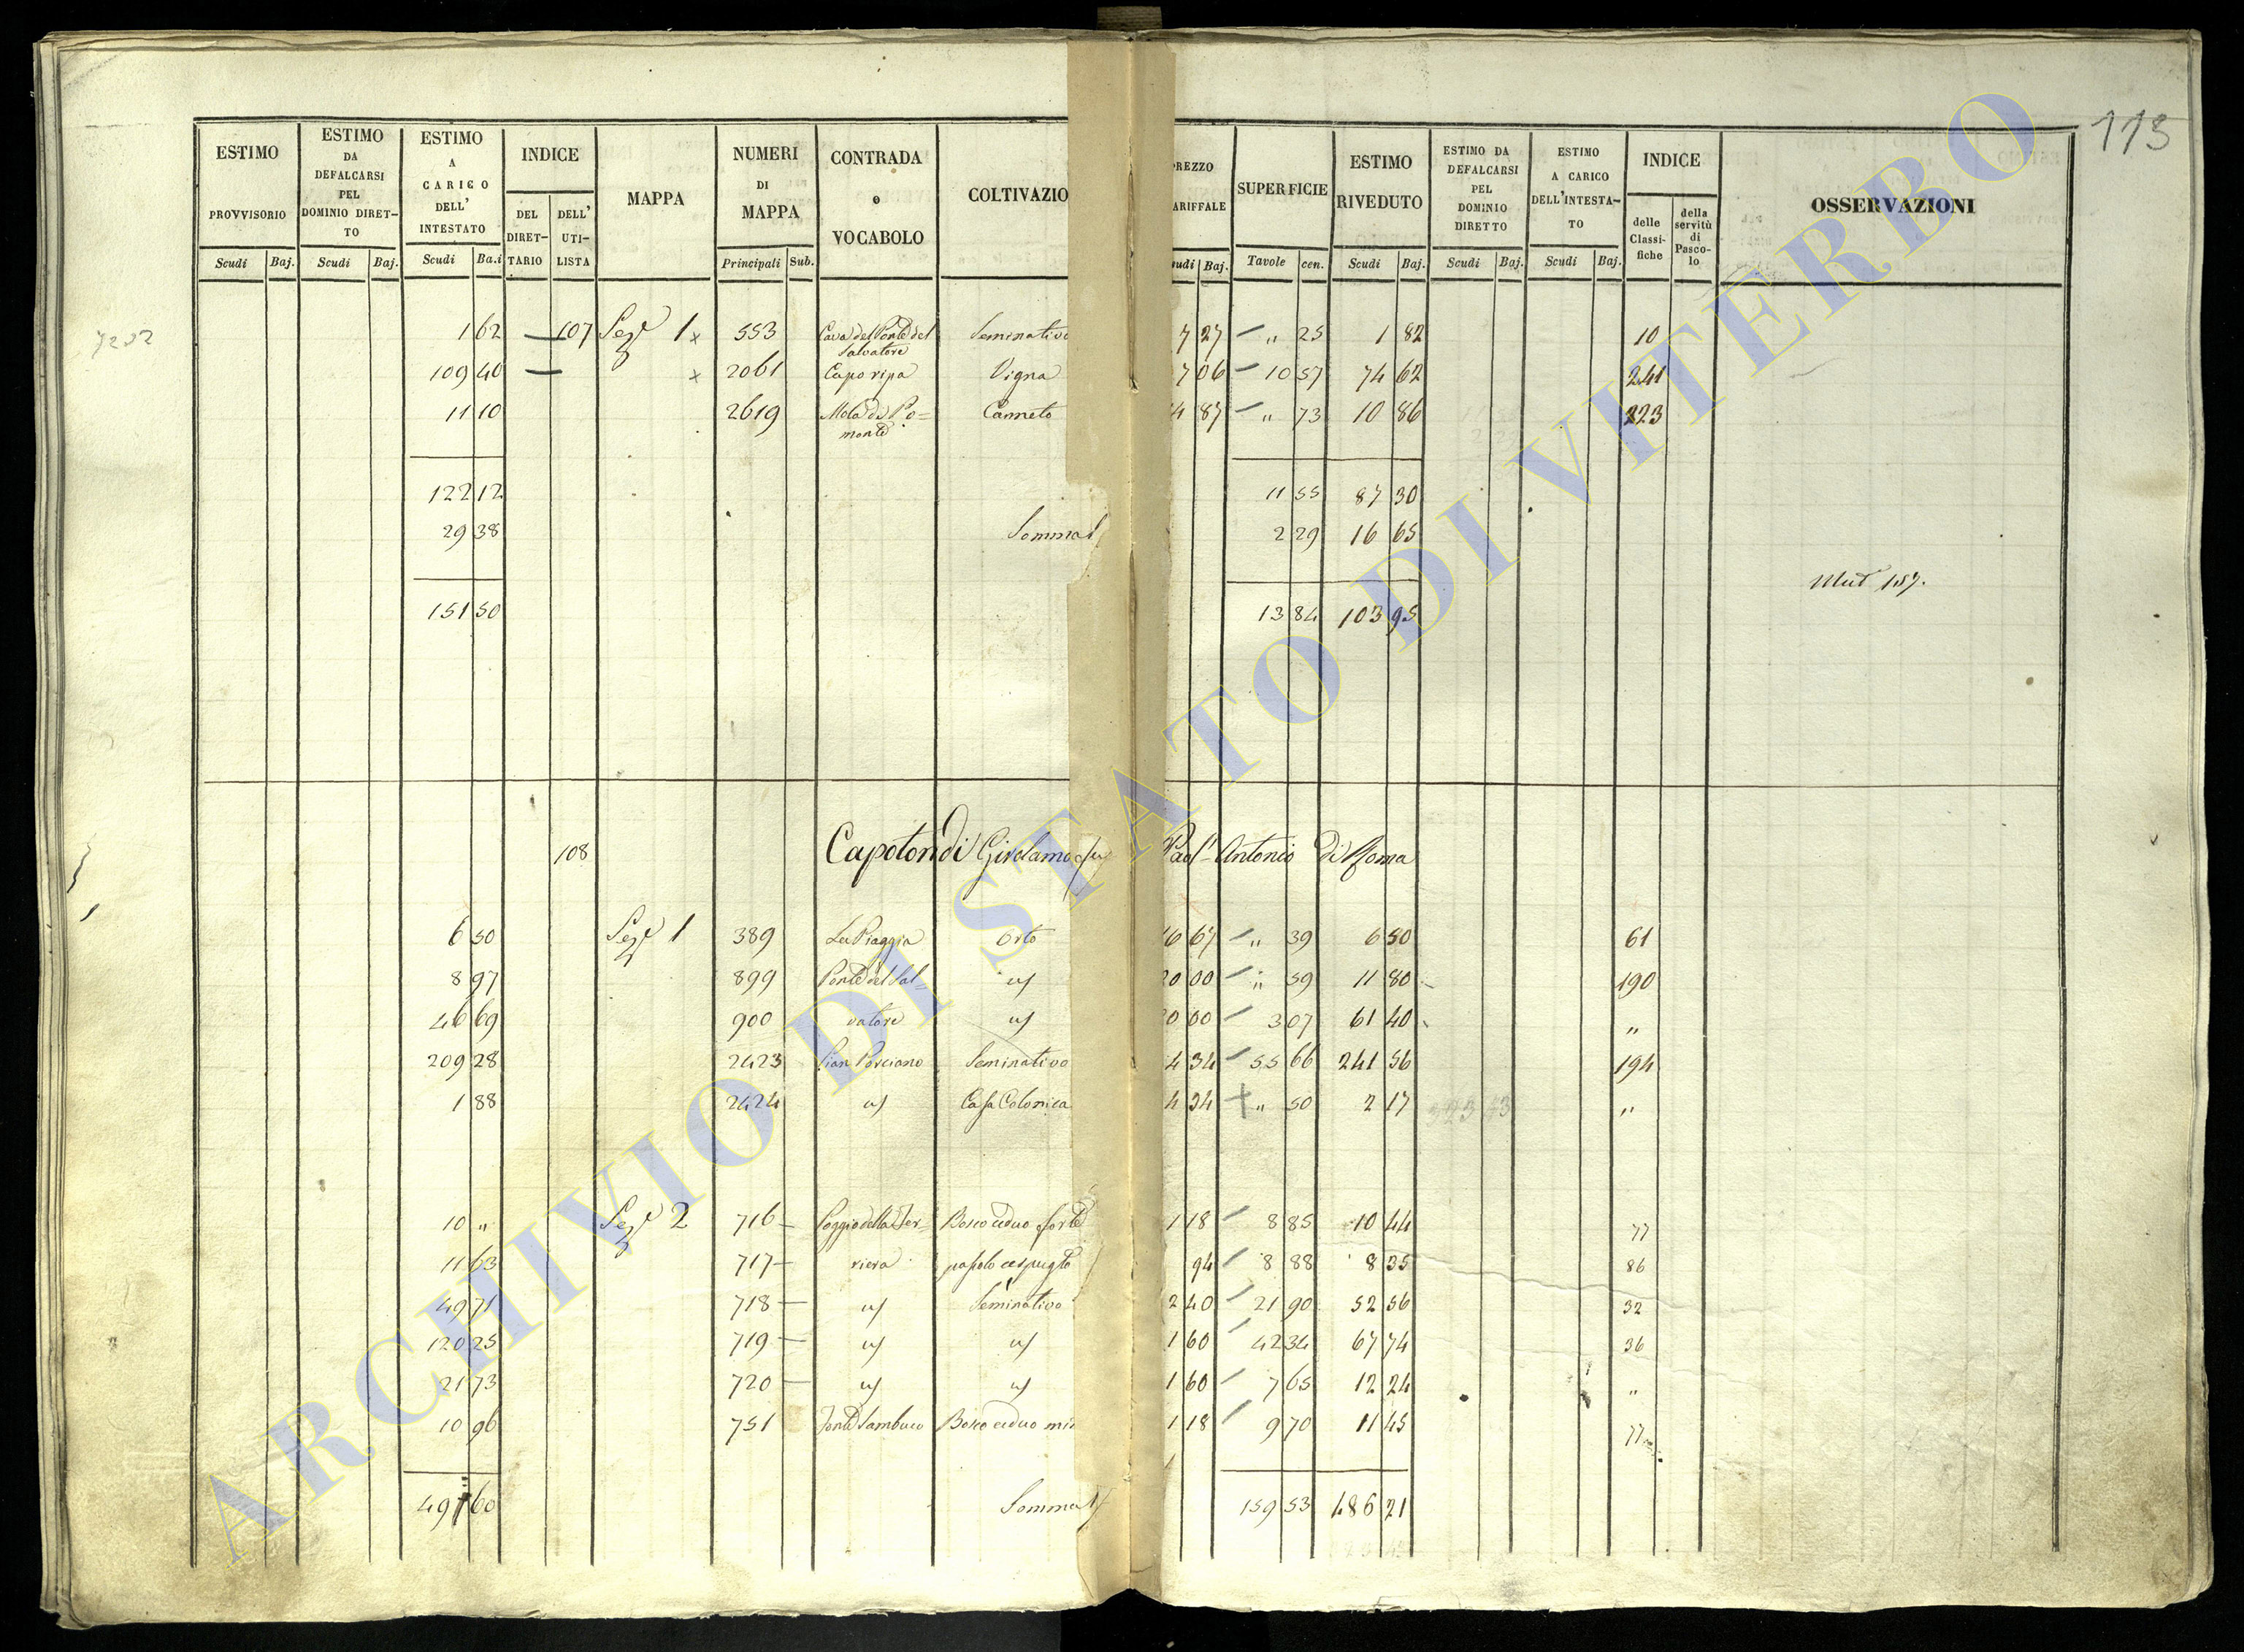 113
ESTIMO PROVVISORIO | ESTIMO DA DEFALCARSI PEL DOMINIO DIRETTO | ESTIMO A CARICO DELL' INTESTATO | INDICE DEL DIRETTARIO | DELL' UTILISTA | MAPPA | NUMERI DI MAPPA | CONTRADA o VOCABOLO | COLTIVAZIO | REZZO ARIFFALE | SUPERFICIE | ESTIMO RIVEDUTO | ESTIMO DA DEFALCARSI PEL DOMINIO DIRETTO | ESTIMO A CARICO DELL'INTESTATO | INDICE delle Classifiche | della servitù di Pascolo | OSSERVAZIONI
Scudi Baj. | Scudi Baj. | Scudi Ba.i | Principali Sub. | udi Baj. | Tavole cen. | Scudi Baj. | Scudi Baj. | Scudi Baj.
1 62 — 107 Sez.e 1 x 553 Cava del Ponte del Salvatore Seminativo 7 27 " 25 1 82 10
109 40 — x 2061 Capo ripa Vigna 7 06 10 57 74 62 241
11 10 2619 Mola di Pomonte Canneto 4 87 " 73 10 86 223
122 12 11 55 87 30
29 38 Somma 2 29 16 65
Mut 157.
151 50 13 84 103 95
108 Capotondi Girolamo fu Paol' Antonio di Roma
6 50 Sez.e 1 389 La Piaggia Orto 16 67 " 39 6 50 61
8 97 899 Ponte del Sal= uf 20 00 " 59 11 80 190
46 69 900 vatore uf 20 00 3 07 61 40 "
209 28 2423 Pian Porciano Seminativo 4 34 55 66 241 56 194
1 88 2424 uf Casa Colonica 4 34 + " 50 2 17 "
10 " Sez.e 2 716 Poggio della Fer= Bosco ceduo forte 1 18 8 85 10 44 77
11 63 717 riera pascolo cespugto 94 8 88 8 35 86
49 71 718 uf Seminativo 2 40 21 90 52 56 32
120 25 719 uf uf 1 60 42 34 67 74 36
21 73 720 uf uf 1 60 7 65 12 24 "
10 96 751 Fonte Sambuco Bosco ceduo mis 1 18 9 70 11 45 77
60 Somma 159 53 486 21
ARCHIVIO DI STATO DI VITERBO